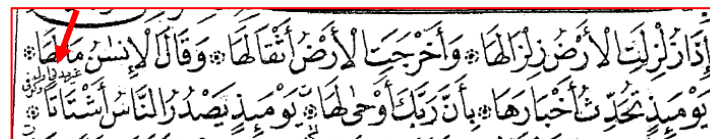 إِذَا زُلْزِلَتِ الْأَرْضُ زِلْزَالَهَا ۞ وَأَخْرَجَتِ الْأَرْضُ أَثْقَالَهَا ۞ وَقَالَ الْإِنسَٰنُ مَا لَهَا ۞
يَوْمَئِذٍ تُحَدِّثُ أَخْبَارَهَا ۞ بِأَنَّ رَبَّكَ أَوْحَىٰ لَهَا ۞ يَوْمَئِذٍ يَصْدُرُ النَّاسُ أَشْتَاتًا ۞